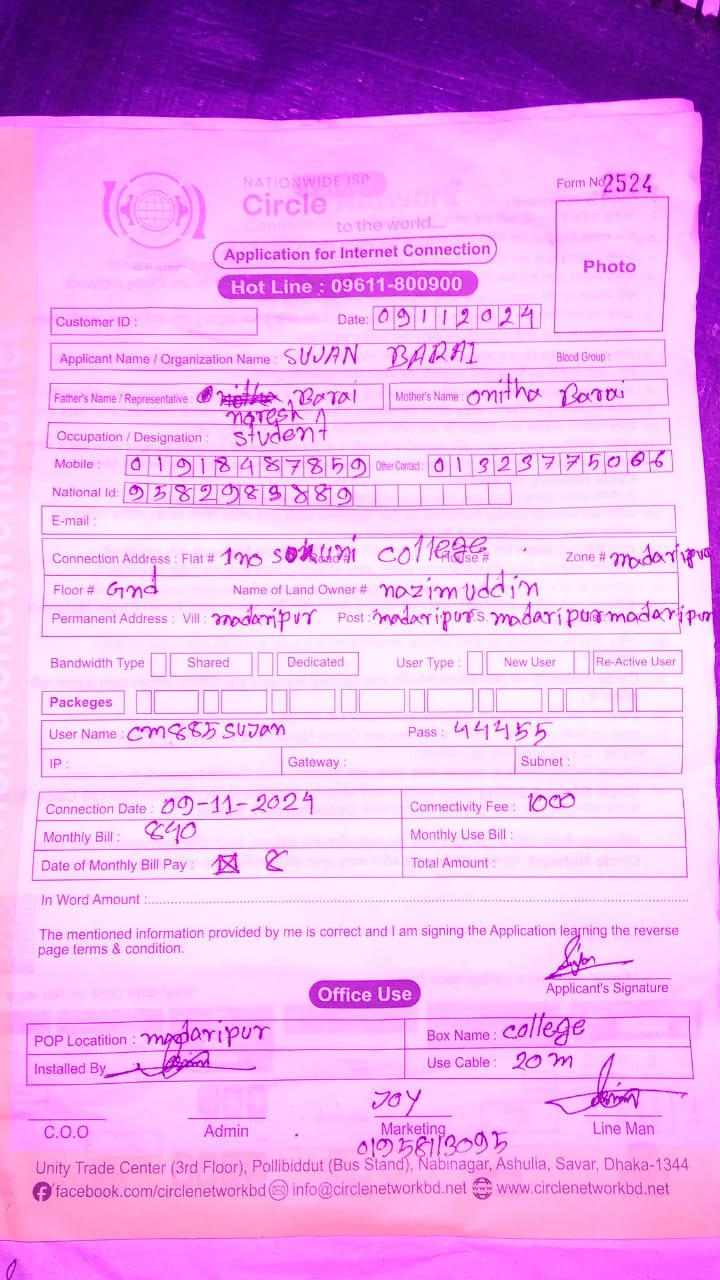 NATIONWIDE ISP
Form No 2524
Circle Network
Connected to the world.....
Application for Internet Connection
Photo
Hot Line : 09611-800900
Customer ID :
Date: 09112024
Applicant Name / Organization Name : SUJAN BARAI Blood Group :
Father's Name / Representative : Barai Mother's Name : onitha Barai
naresh
Occupation / Designation : student
Mobile : 01918487859 Other Contact : 01323775006
National Id: 9582983889
E-mail :
Connection Address : Flat # 1no college House # Zone # madaripur
Floor # Gnd Name of Land Owner # nazimuddin
Permanent Address : Vill : madaripur Post : madaripur P.S. madaripur madaripur
Bandwidth Type Shared Dedicated User Type : New User Re-Active User
Packeges
User Name : CM885SUJAN Pass : 44455
IP : Gateway : Subnet :
Connection Date : 09-11-2024 Connectivity Fee : 1000
Monthly Bill : 840 Monthly Use Bill :
Date of Monthly Bill Pay : 8 Total Amount :
In Word Amount :
The mentioned information provided by me is correct and I am signing the Application learning the reverse
page terms & condition.
Applicant's Signature
Office Use
POP Locatition : madaripur Box Name : college
Installed By Use Cable : 20m
JOY
C.O.O Admin Marketing Line Man
01958113095
Unity Trade Center (3rd Floor), Pollibiddut (Bus Stand), Nabinagar, Ashulia, Savar, Dhaka-1344
facebook.com/circlenetworkbd info@circlenetworkbd.net www.circlenetworkbd.net